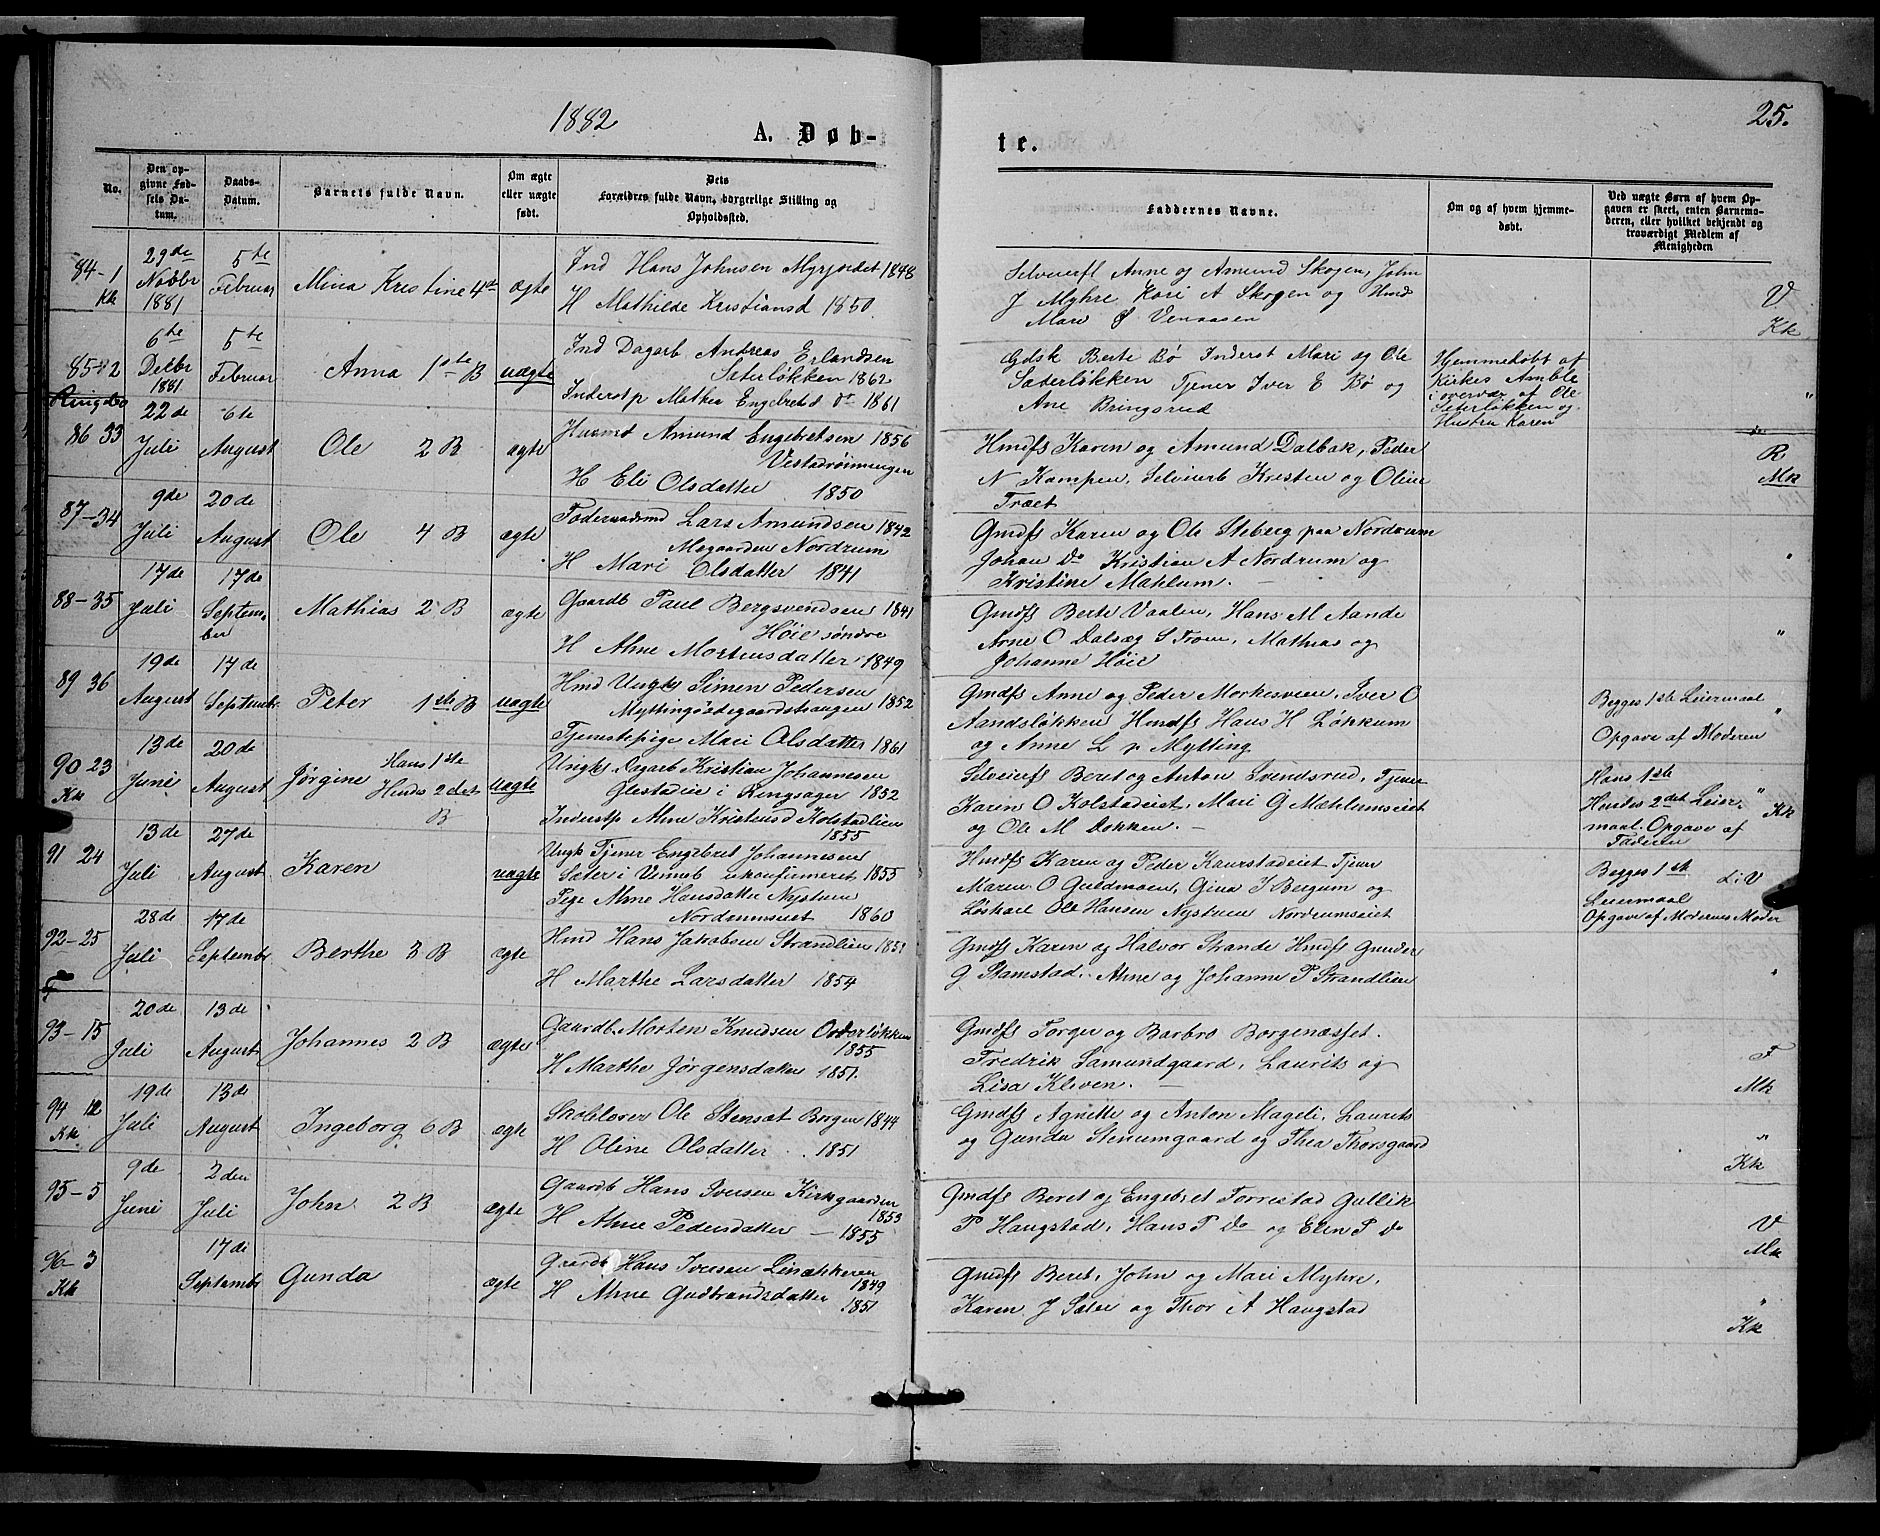 1882
A. Døb-
te.
25.
No.
Den op-
givne Fød-
sels Da-
tum.
Daabs-
Datum.
Barnets fulde Navn.
Om ægte
eller uægte
født.
Dets
Forældres fulde Navn, borgerlige Stilling og
Opholdssted.
Faddernes Navne.
Om og af hvem hjemme-
døbt.
Ved uægte Børn af hvem Op-
gaven er skeet, enten Barnemo-
deren, eller hvilket bekjendt og
troværdigt Medlem af
Menigheden
84-1
Kk
29de
Novbr
1881
5te
Februar
Mina Kristine 4de
ægte
Ind Hans Johnsen Myrjordet 1848
H Mathilde Kristiansd 1850.
Selveierfl Anne og Amund Skogen, John
J Myhre Kari A Skogen og Hmd
Mari Ø Venaasen
V
Kk
85-2
Ringebo
6te
Decbr
1881
5te
Februar
Anna 1ste B
uægte
Ind Dagarb Andreas Erlandsen
Sæterløkken 1862
Inderstp Mathea Engebretsd 1861
Gdsk Berte Bø Inderst Mari og Ole
Sæterløkken Tjener Iver E Bø og
Ane Bringsrud
Hjemmedøbt af
Kirkes Amble
i overvær af Ole
Sæterløkken og
Hustru Karen
"
86 33
22de
Juli
6te
August
Ole 2 B
ægte
Husmd Amund Engebretsen 1856
Vestadrønningen
H Eli Olsdatter 1850
Hmdfs Karen og Amund Dalbak, Peder
N Kampen, Selveierb Kristen og Oline
Træet
R
Mk
87-34
9de
Juli
20de
August
Ole 4 B
ægte
Føderaadsmd Lars Amundsen 1842
Mogaarden Nordrum
H Mari Olsdatter 1841
Gmdfs Karen og Ole Steberg paa Nordrum
Johan Do Kristian A Nordrum og
Kristine Mæhlum. —
"
88-35
17de
Juli
17de
Septem-
ber
Mathias 2 B
ægte
Gaardb Paul Bergsvendsen 1841
Høie søndre
H Ahne Mortensdatter 1849
Gmdfs Berte Vaalen, Hans M Aande
Arne O Dalsæg S Troen, Mathias og
Johanne Høie
"
89 36
19de
August
17de
Septembr
Peter 1ste B
uægte
Hmd Ungk Simen Pedersen
Myttingødegaardshaugen 1852
Tjenestepige Mari Olsdatter 1861
Gmdfs Anne og Peder Morkesveen, Iver O
Aandsløkken Hmdfs Hans H Løkkum
og Anne L p Mytting
Begges 1ste Leiermaal
Opgave af Moderen
"
90 23
Kk
13de
Juni
20de
August
Jørgine
Hans 1ste
Hendes 2det
B
uægte
Ungk Dagarb Kristian Johannesen
Glestadeie i Ringsager 1852
Inderstp Ahne Kristensd Kolstadlien
1855
Selveierfs Beret og Anton Svendsrud, Tjener
Karen O Kolstadeiet, Mari G Mæhlumseiet
og Ole M Dokken. —
Hans 1ste
Hendes 2det Leier-
maal. Opgave af
Faderen
"
Kk
91 24
13de
Juli
27de
August
Karen
uægte
Ungk Tjener Engebret Johannesen
Sæter i Venneb ukonfirmeret 1855
Pige Ahne Hansdatter Nystuen
Nordrumseiet 1860
Hmdfs Karen og Peder Kaurstadeiet Tjener
Maren O Guldmoen, Gina J Bergum og
Løskarl Ole Hansen Nystuen Nordrumseiet
Begges 1ste
Leiermaal
Opgave af Modernes Moder
L: V
92-25
F
28de
Juli
17de
Septembr
Berthe 3 B
ægte
Hmd Hans Jakobsen Strandlien 1851
H Marthe Larsdatter 1854
Gmdfs Karen og Halvor Strande Hmdfs Gunder
G Stamstad. Ahne og Johanne P Strandlien
"
93-15
20de
Juli
13de
August
Johannes 2 B
ægte
Gaardb. Morten Knudsen Odderløkken
1855
H Marthe Jørgensdatter 1851.
Gmdfs Torger og Barbro Borgenæsset.
Fredrik Samundgaard, Laurits og
Lisa Kleven. —
F
Mk
94 12
Kk
19de
Juli
13de
August
Ingeborg 6 B
ægte
Skolelærer Ole Stensæt Borgen 1844
H Oline Olsdatter 1851
Gmdfs Agnette og Anton Mageli, Laurits
og Gunda Stenumgaard og Thea Thorsgaard
"
Kk
95-5
9de
Juni
2den
Juli
John 2 B
ægte
Gaardb Hans Iversen Kirkgaarden
1853
H Ahne Pedersdatter — 1855
Gmdfs Beret og Engebret Forrestad Gullik
P Haugstad, Hans P Do og Elen P Do
V
Mk
96-3
Kk
17de
Septembr
Gunda
ægte
Gaardb Hans Iversen Linækkeren
1849
H Ahne Gudbrandsdatter
1851
Gmdfs Beret, John og Mari Myhre,
Karen J Sæter og Thor A Haugstad
"
Kk